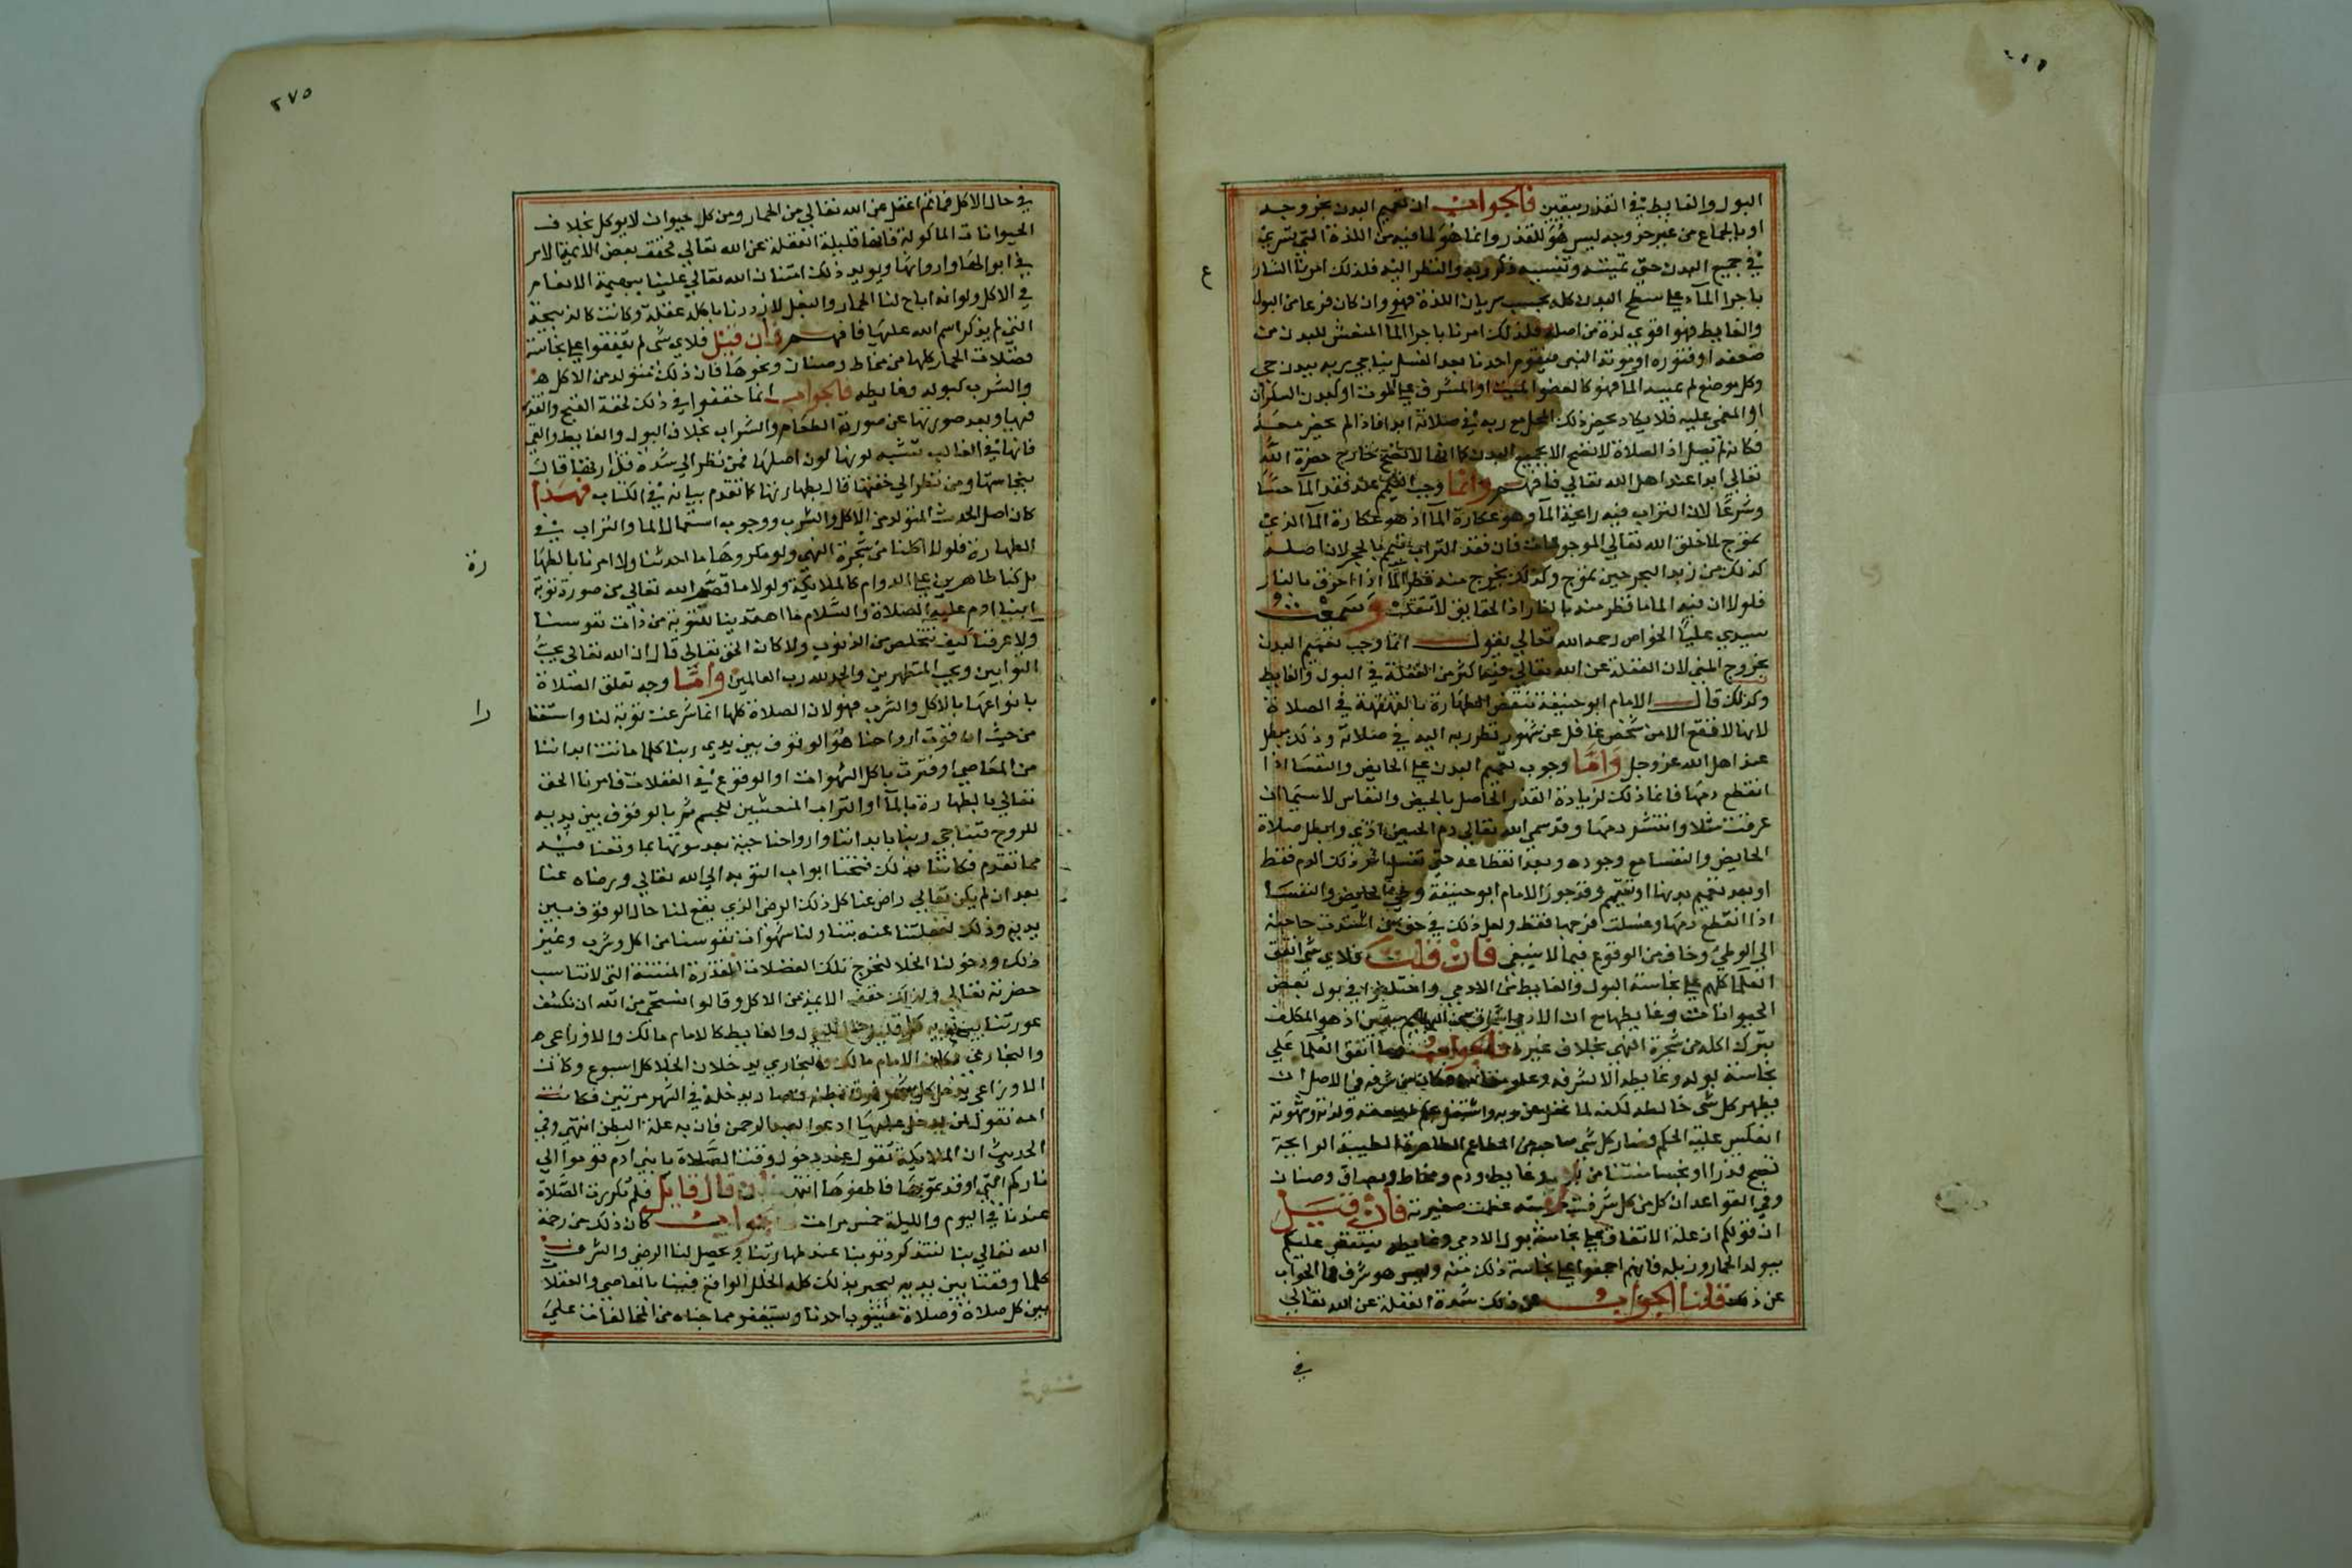 البول والغايط في القذر بيقين فالجواب ان تعميم البدن بخروجه
او بالجماع من غير خروجه ليس هو للقذر وانما هو لما فيه من اللذة التي تسري
في جميع البدن حتى تميته وتنسيه ذكر ربه والنظر اليه فلذلك امرنا الشارع
باجرا المآء على سطح البدن كله بحسب سريان اللذة فهو وان كان فرعا من البول
والغايط فهو اقوى لذة من اصله فلذلك امرنا باجرا الما المنعش للبدن من
ضعفه او فتوره او موته التى فيقوم احدنا بعد الغسل يناجي ربه ببدن حي
وكل موضع لم يصبه الما فهو كالعضو الميت او المشرف على الموت او كبدن السكران
او المغمى عليه فلا يكاد يحضر ذلك المحل مع ربه في صلاته ابدا فاذا لم يحضر معه
فكانه لم يصل اذ الصلاة لا تصح الا بجميع البدن كما انها لا تصح خارج حضرة الله
تعالى ابدا عند اهل الله تعالى فافهم وانما وجب التيمم عند فقد المآ حسا
وشرعا لان التراب فيه رايحة المآ وهو عكارة المآ اذ هو عكارة المآ الذي
تموج لما خلق الله تعالى الموجودات فان فقد التراب تيمم بالحجر لان اصله
كذلك من زبد البحر حين تموج وكذلك يخرج منه قطر المآ اذا احرق بالنار
فلولا ان فيه الما ما قطر منه بالنار اذ الحقايق لا تنقلب وسمعت
سيدي عليا الخواص رحمه الله تعالى يقول انما وجب تعميم البدن
بخروج المني لان الغفلة عن الله تعالى فيه اكثر من الغفلة في البول والغايط
وكذلك قال الامام ابو حنيفة تنقض الطهارة بالقهقهة في الصلاة
لانها لا تقع الا من شخص غافل عن شهود نظر ربه اليه في صلاته وذلك مبطل
عند اهل الله عز وجل واما وجوب تعميم البدن على الحايض والنفسا اذا
انقطع دمها فانما ذلك لزيادة القذر الحاصل بالحيض والنفاس لا سيما ان
عرقت مثلا وانتشر دمها وقد سمى الله تعالى دم الحيض اذى وابطل صلاة
الحايض والنفسا مع وجوده وبعد انقطاعه حتى تغسل اثر ذلك الدم فقط
او بعد تعميم بدنها او تتيمم وقد جوز الامام ابو حنيفة وطئ الحايض والنفسا
اذا انقطع دمها وغسلت فرجها فقط ولعل ذلك في حق من اشتدت حاجته
الى الوطئ وخاف من الوقوع فيما لا ينبغي فان قلت فلاي شي اتفق
العلما كلهم على نجاسة البول والغايط من الادمي واختلفوا في بول بعض
الحيوانات وغايطها مع ان الادمي اشرف من البهايم بيقين اذ هو المكلف
بترك اكله من شجرة النهى بخلاف غيره فالجواب انما اتفق العلما على
نجاسة بوله وغايطه لشرفه وعلو مقامه فكان من شرفه في الاصل ان
يطهر كل شي خالطه لكنه لما غفل عن ربه واشتغل بحكم طبيعته ولذته وشهوته
انعكس عليه الحكم وصار كل شي صاحبه من المطاعم الطاهرة الطيبة الرايحة
تصبح قذرا او نجسا منتنا من بول وغايط ودم ومخاط وبصاق وصنان
وفي القواعد ان كل من كل شرفت مرتبته عظمت صغيرته فان قيل
ان قولكم ان علة الاتفاق على نجاسة بول الادمي وغايطه ينتقض عليكم
ببول الحمار وزبله فانهم اجمعوا على نجاسة ذلك منه وليس هو شرف فما الجواب
عن ذلك قلنا الجواب عن ذلك شدة الغفلة عن الله تعالى
في
ع
٢٧٥
في حال الاكل فما ثم اغفل عن الله تعالى من الحمار ومن كل حيوان لا يوكل بخلاف
الحيوانات الماكولة فانها قليلة الغفلة عن الله تعالى فخفف بعض الايمة الامر
في ابوالها وارواثها ويويد ذلك امتنان الله تعالى علينا ببهيمة الانعام
في الاكل ولو انه اباح لنا الحمار والبغل لازددنا باكله غفلة وكانت كالذبيحة
التي لم يذكر اسم الله عليها فافهم فان قيل فلاي شي لم يتفقوا على نجاسة
فضلات الحمار كلها من مخاط وصنان ونحوها فان ذلك متولد من الاكل
والشرب كبوله وغايطه فالجواب انما خففوا في ذلك لخفة القبح والقذر
فيها وبعد صورتها عن صورة الطعام والشراب بخلاف البول والغايط والقي
فانها في الغالب تشبه لونها لون اصلها فمن نظر الى شدة قذارتها قال
بنجاستها ومن نظر الى خفتها قال بطهارتها كما تقدم بيانه في الكتاب فهذا
كان اصل الحدث المتولد من الاكل والشرب ووجوب استعمال الما والتراب في
الطهارة فلولا اكلنا من شجرة النهى ولو مكروها ما احدثنا ولا امرنا بالطهارة
بل كنا طاهرين على الدوام كالملائكة ولولا ما قصه الله تعالى من صورة توبة
ابينا ادم عليه الصلاة والسلام ما اهتدينا للتوبة من ذات نفوسنا
ولا عرفنا كيف نتخلص من الذنوب ولا كان الحق تعالى قال ان الله تعالى يحب
التوابين ويحب المتطهرين والحمد لله رب العالمين واما وجه تعلق الصلاة
بانواعها بالاكل والشرب فهو لان الصلاة كلها انما شرعت توبة لنا واستغفارا
من حيث ان قوت ارواحنا هو الوقوف بين يدي ربنا كلما ماتت ابداننا
من المعاصي او فترت باكل الشهوات او الوقوع في الغفلات فامرنا الحق
تعالى بالطهارة بالمآ او التراب المنعشين للجسم ثم بالوقوف بين يديه
للروح فنناجي ربنا بابداننا وارواحنا حية بعد موتها بما وقعنا فيه
مما تقدم فكاننا بذلك فتحنا ابواب التوبة الى الله تعالى ورضاه عنا
بعد ان لم يكن تعالى راض عنا كل ذلك الرضى الذي يقع لنا حال الوقوف بين
يديه وذلك لغفلتنا عنه بتناولنا شهوات نفوسنا من اكل وشرب وغير
ذلك ودخولنا الخلا لنخرج تلك الفضلات القذرة المنتنة التي لا تناسب
حضرته تعالى ولذلك خفف الايمة من الاكل وقالوا نستحي من الله ان نكشف
عورتنا بين يديه كل قليل والغايط كالامام مالك والاوزاعي
والبخاري فكان الامام مالك والبخاري يدخلان الخلا كل اسبوع وكانت
الاوزاعي يدخل كل شهر وصار يدخله في الشهر مرتين فكانت
امه تقول لمن يدخل عليها ادعوا لعبد الرحمن فان به علة البطن انتهى وفي
الحديث ان الملائكة تقول عند دخول وقت الصلاة يا بني ادم قوموا الى
ناركم التي اوقدتموها فاطفوها انتهى فان قال قايل فلم تكررت الصلاة
عندنا في اليوم والليلة خمس مرات فالجواب كان ذلك من رحمة
الله تعالى بنا لنتذكر ذنوبنا عند طهارتنا ويحصل لنا الرضى والشرف
كلما وقفنا بين يديه ليجبر بذلك كله الخلل الواقع فينا بالمعاصي والغفلات
بين كل صلاة وصلاة فيتوب احدنا ويستغفر مما جناه من المخالفات على
رة
را